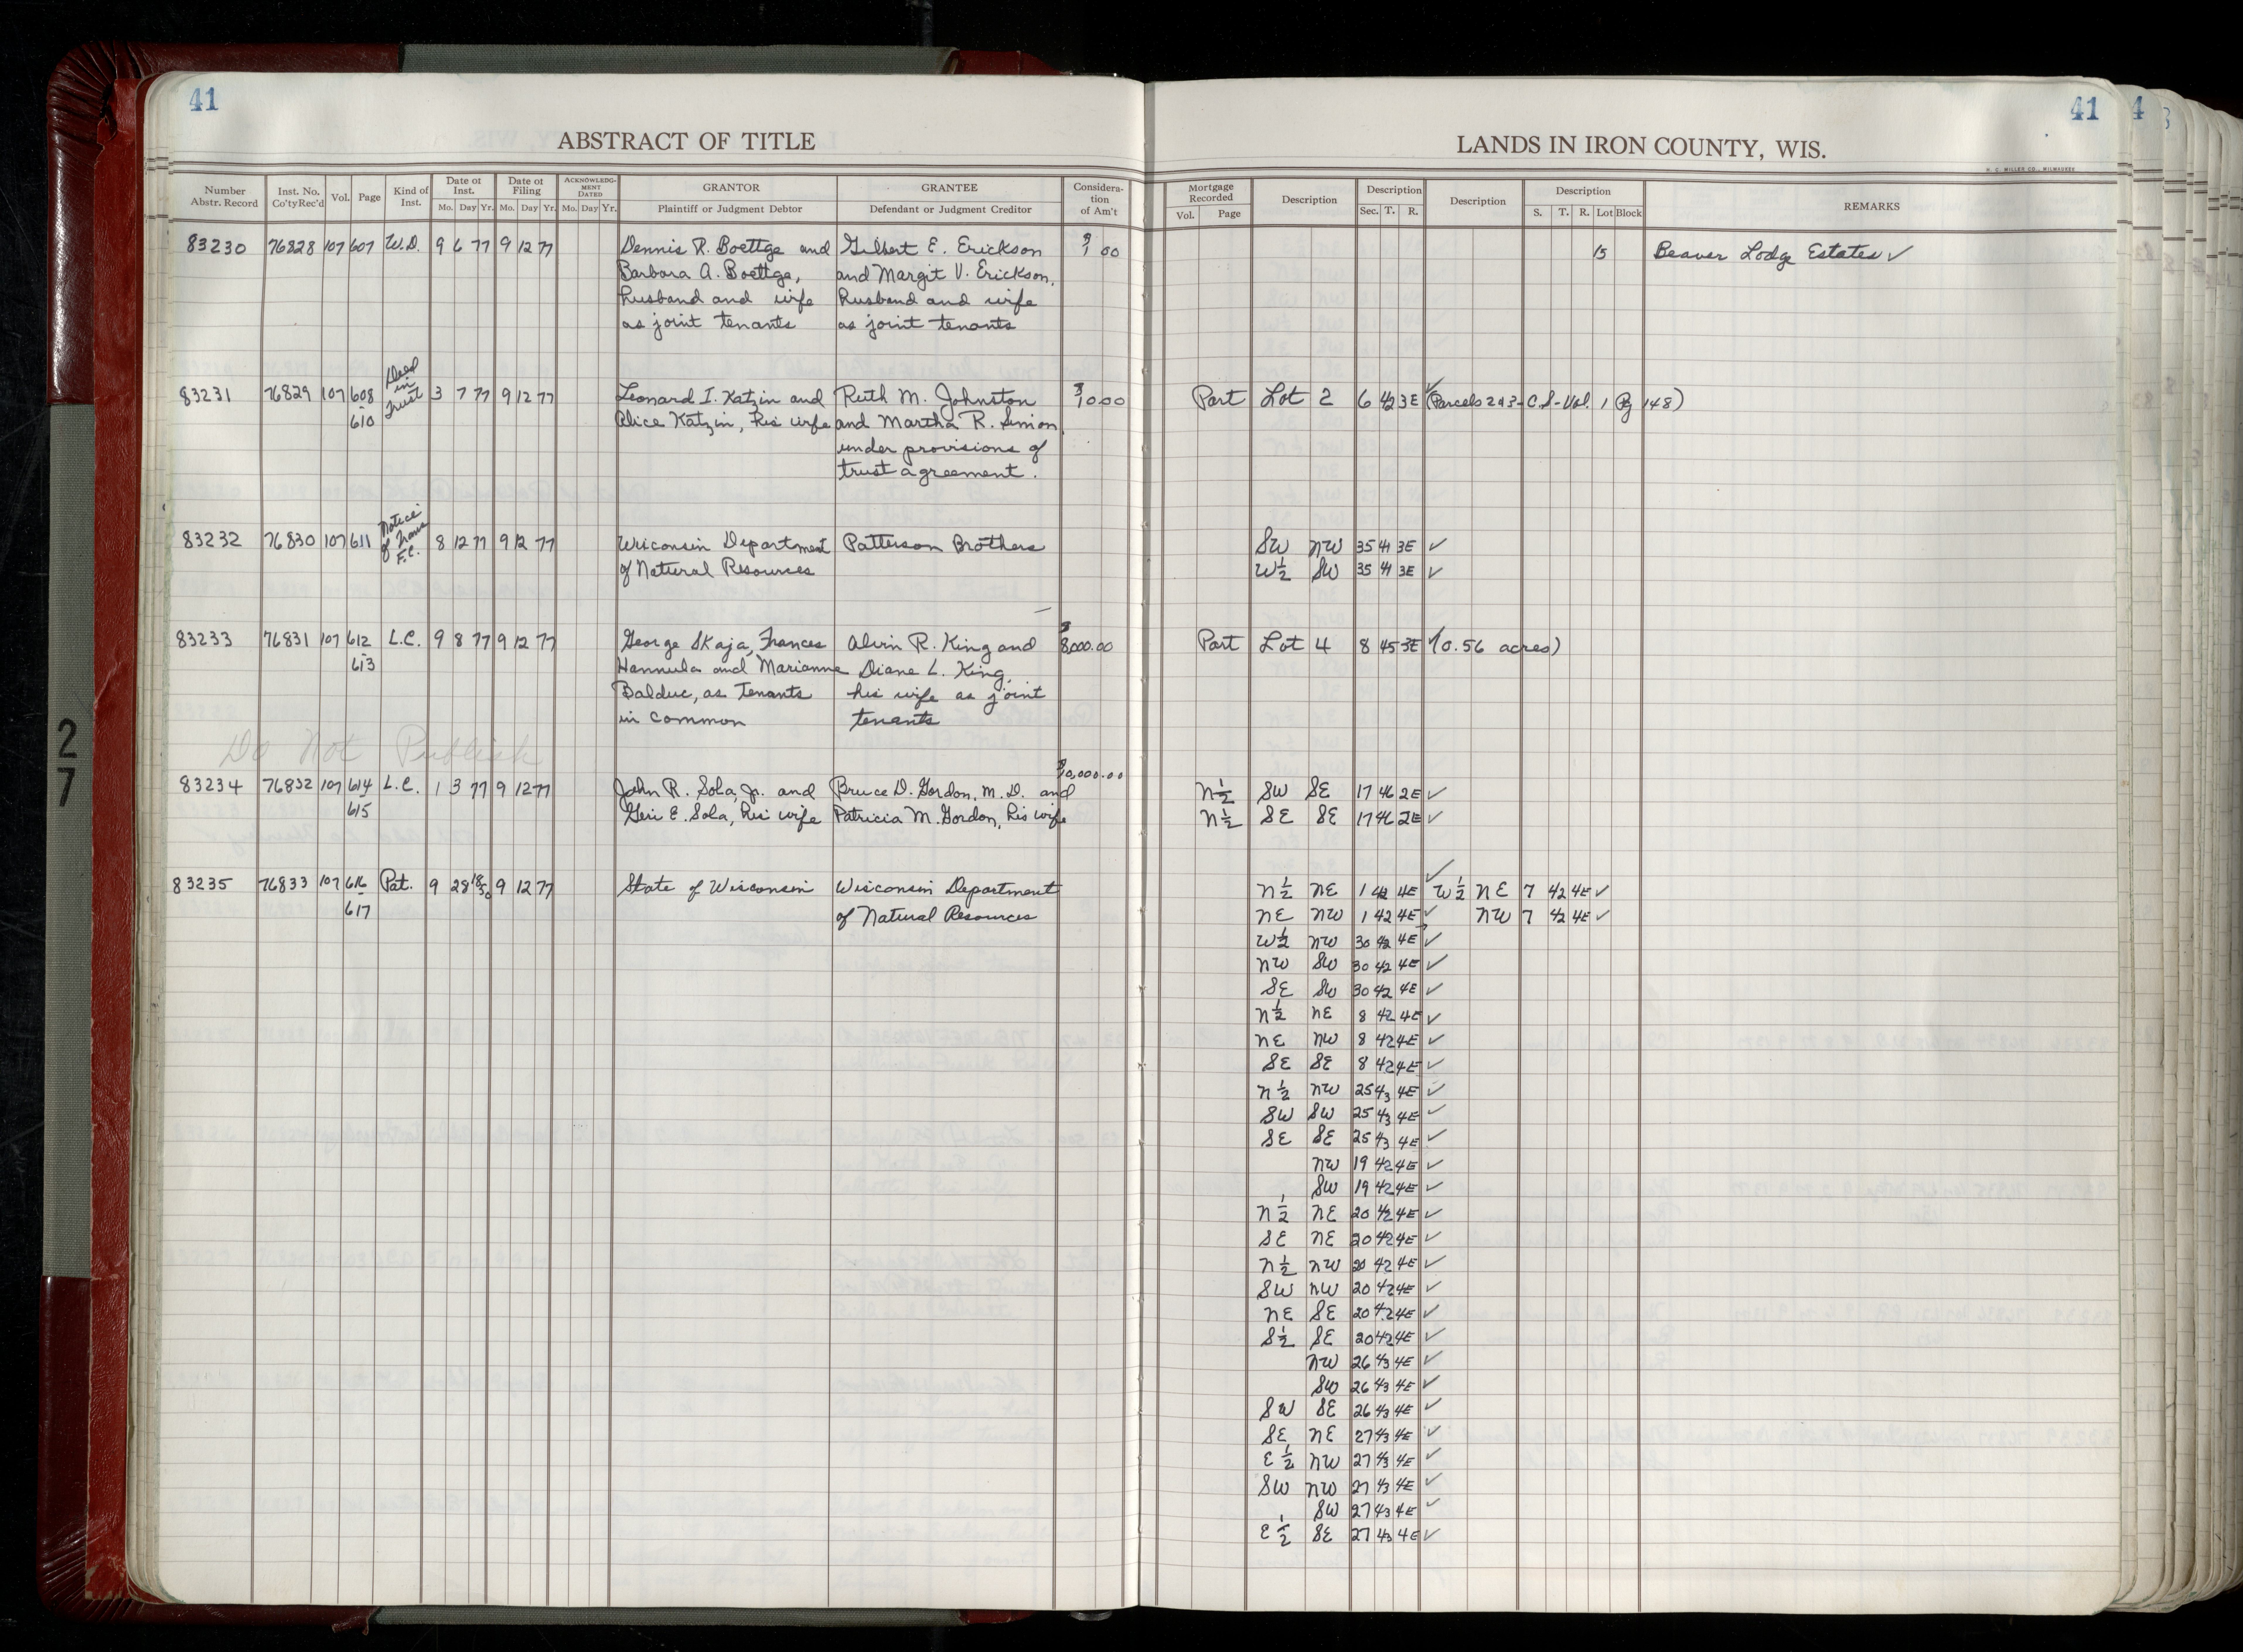 41
ABSTRACT OF TITLE
Number Abstr. Record
Inst. No. Co'ty Rec'd
Vol.
Page
Kind of Inst.
Date of Inst. Mo. Day Yr.
Date of Filing Mo. Day Yr.
ACKNOWLEDGMENT DATED Mo. Day Yr.
GRANTOR Plaintiff or Judgment Debtor
GRANTEE Defendant or Judgment Creditor
Consideration of Am't
83230 76828 107 607 W.D. 9 6 77 9 12 77 Dennis R. Boettge and Gilbert E. Erickson $1 00
Barbara A. Boettge, and Margit V. Erickson,
husband and wife husband and wife
as joint tenants as joint tenants
83231 76829 107 608 Deed in Trust 3 7 77 9 12 77 Leonard I. Katzin and Ruth M. Johnston $10.00
610 Alice Katzin, his wife and Martha R. Simon,
under provisions of
trust agreement.
83232 76830 107 611 Notice of Trans F.C. 8 12 77 9 12 77 Wisconsin Department Patterson Brothers
of Natural Resources
83233 76831 107 612 L.C. 9 8 77 9 12 77 George Skaja, Frances Alvin R. King and $8,000.00
613 Hannula and Marianne Diane L. King,
Balduc, as Tenants his wife as joint
in common tenants
Do Not Publish
$10,000.00
83234 76832 107 614 L.C. 1 3 77 9 12 77 John R. Sola, Jr. and Bruce D. Gordon, M.D. and
615 Geri E. Sola, his wife Patricia M. Gordon, his wife
83235 76833 107 616 Pat. 9 28 1850 9 12 77 State of Wisconsin Wisconsin Department
617 of Natural Resources
41
LANDS IN IRON COUNTY, WIS.
H. C. MILLER CO., MILWAUKEE
Mortgage Recorded Vol. Page
Description
Description Sec. T. R.
Description
Description S. T. R. Lot Block
REMARKS
15 Beaver Lodge Estates ✓
Part Lot 2 6 42 3E ✓ (Parcels 2 & 3 - C.S - Vol. 1 Pg 148)
SW NW 35 41 3E ✓
W½ SW 35 41 3E ✓
Part Lot 4 8 45 3E ✓ (0.56 acres)
N½ SW SE 17 46 2E ✓
N½ SE SE 17 46 2E ✓
N½ NE 1 42 4E ✓ W½ NE 7 42 4E ✓
NE NW 1 42 4E ✓ NW 7 42 4E ✓
W½ NW 30 42 4E ✓
NW SW 30 42 4E ✓
SE SW 30 42 4E ✓
N½ NE 8 42 4E ✓
NE NW 8 42 4E ✓
SE SE 8 42 4E ✓
N½ NW 25 43 4E ✓
SW SW 25 43 4E ✓
SE SE 25 43 4E ✓
NW 19 42 4E ✓
SW 19 42 4E ✓
N½ NE 20 42 4E ✓
SE NE 20 42 4E ✓
N½ NW 20 42 4E ✓
SW NW 20 42 4E ✓
NE SE 20 42 4E ✓
S½ SE 20 42 4E ✓
NW 26 43 4E ✓
SW 26 43 4E ✓
SW SE 26 43 4E ✓
SE NE 27 43 4E ✓
E½ NW 27 43 4E ✓
SW NW 27 43 4E ✓
SW 27 43 4E ✓
E½ SE 27 43 4E ✓
27
4